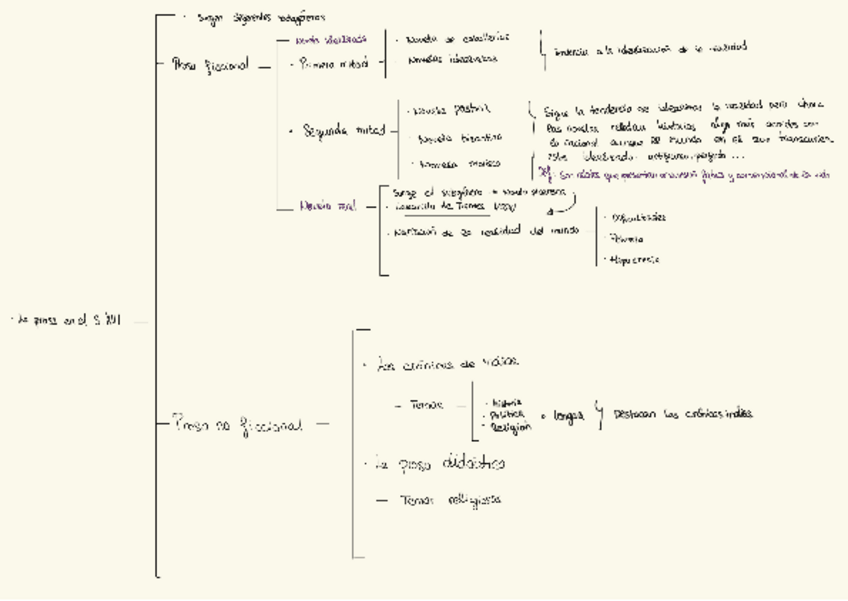 · Surgen siguientes subgéneros
Novela idealizada
Prosa ficcional
· Primera mitad
· Novela de caballerías
· Novelas idealistas
tendencia a la idealización de la realidad
· Segunda mitad
· Novela pastoril
· Novela bizantina
· Novela morisca
Sigue la tendencia de idealizar la realidad pero ahora
las novelas relatan historias algo más acordes con
lo racional aunque el mundo en el que transcurren
este idealizado: antiguo, perfecto ...
Def: Son relatos que presentan una visión y convencional de la vida
Novela real
Surge el subgénero novela picaresca
· Lazarillo de Tormes
· Narración de la realidad del mundo
· Dificultades
· Pobreza
· Hipocresía
· La prosa en el S XVI
Prosa no ficcional
· Las crónicas de indias
- Temas
· historia
· Política
· Religión
· lengua
Destacan las crónicas indias
· La prosa didáctica
- Temas religiosos